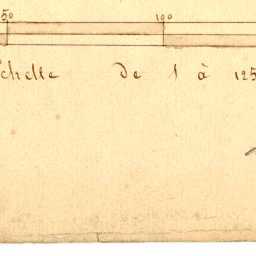 50 100
chelle De 1 à 125